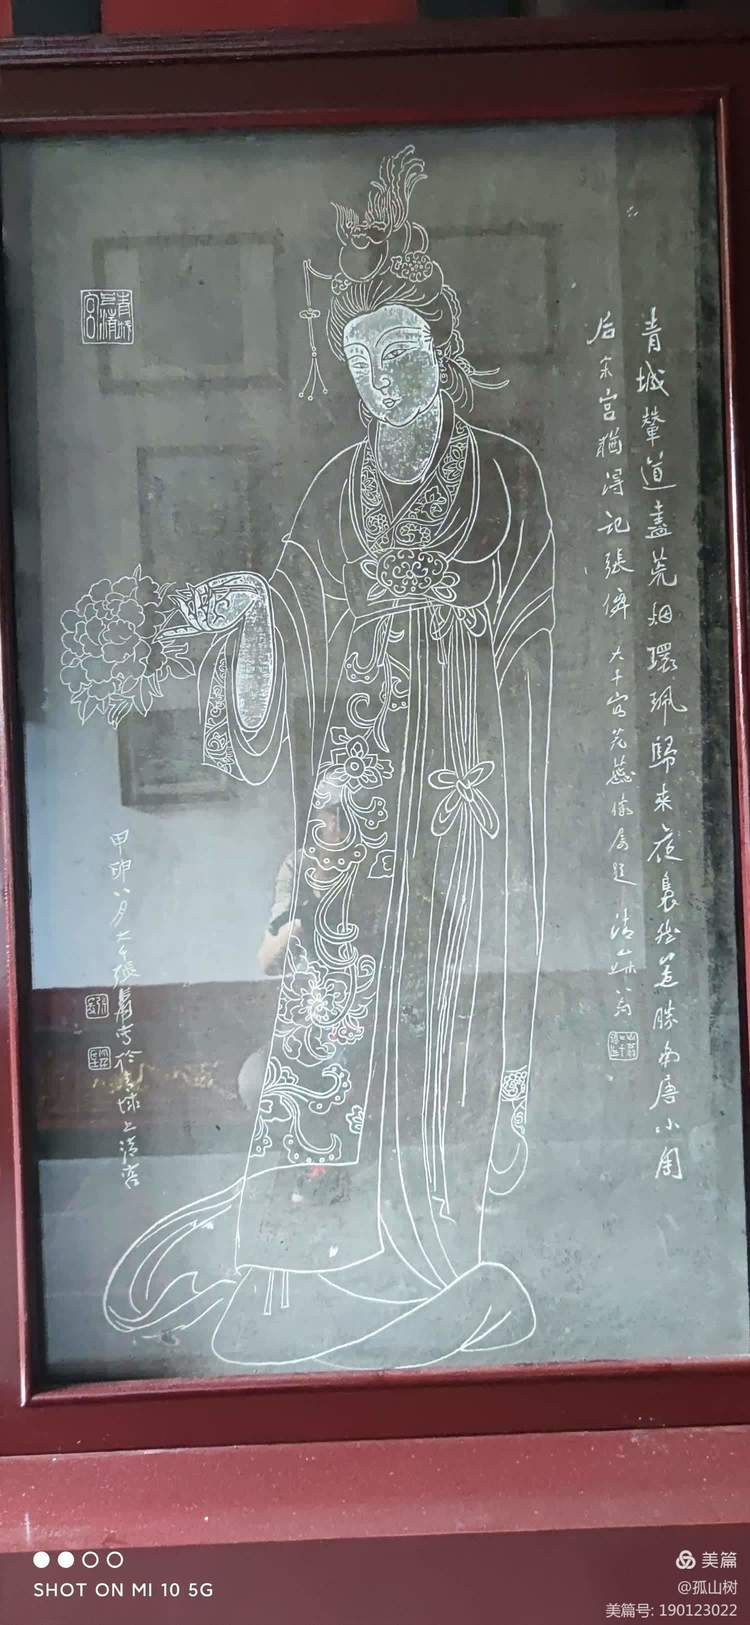 青城輦道盡荒烟環珮歸來夜裊然差勝南唐小周
后宋宮猶得記張僊
大千寫花蕊像屬題
青城上清宮
甲申八月大千張爰寫於青城上清宮
SHOT ON MI 10 5G
美篇
@孤山树
美篇号: 190123022